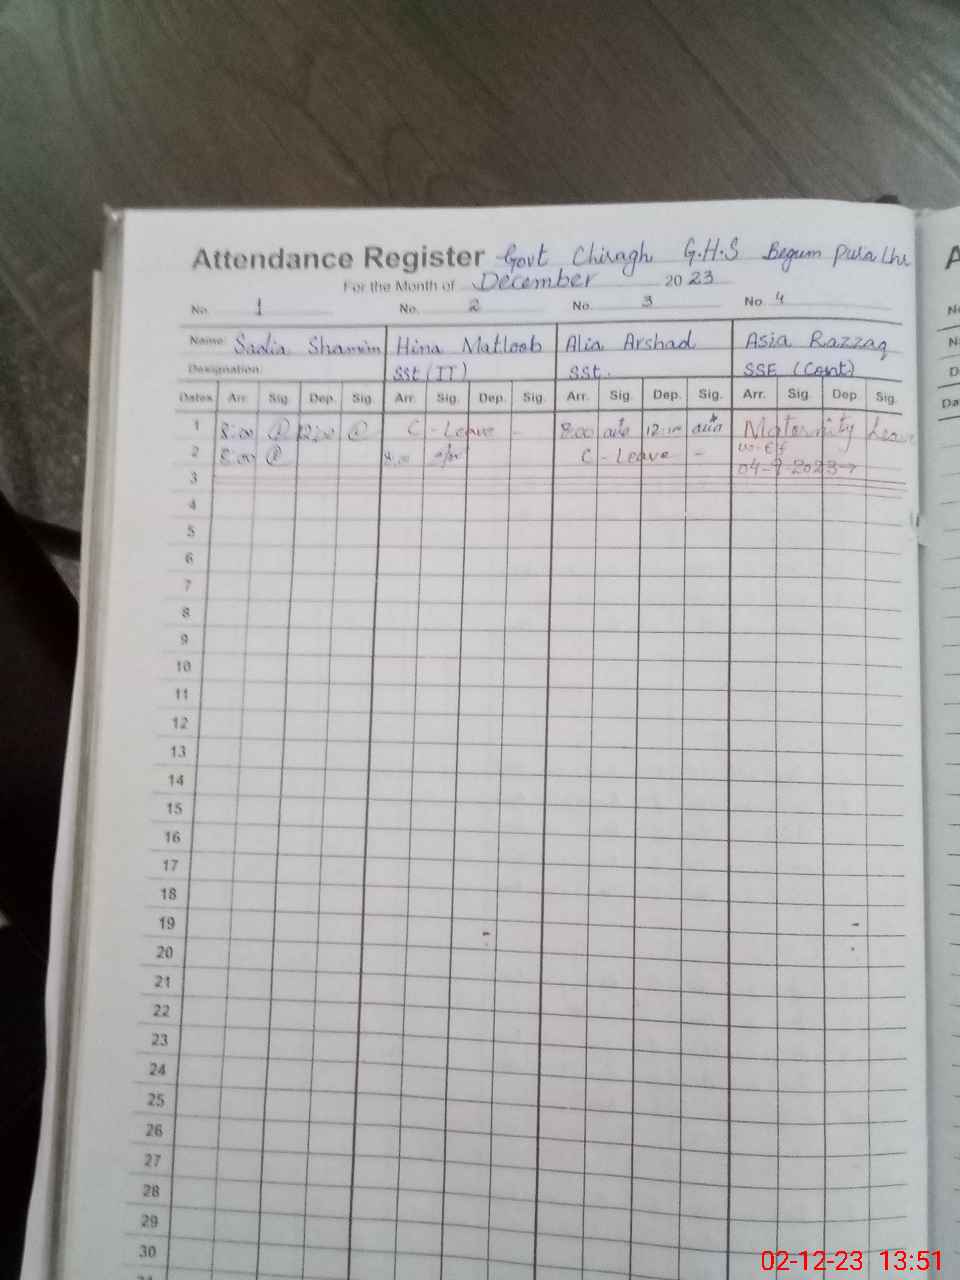 Attendance Register Govt Chiragh G.H.S Begum Pura Lhr
For the Month of December 2023
No. 1 No. 2 No. 3 No 4
Name Sadia Shamim Hina Matloob Alia Arshad Asia Razzaq
Designation SST (IT) SST. SSE (Cont)
Dates Arr. Sig. Dep. Sig. Arr. Sig. Dep. Sig. Arr. Sig. Dep. Sig. Arr. Sig. Dep Sig.
1 8:00 12:00 C - Leave - 8:00 12:00 Maternity Leave
2 8:00 8:00 C - Leave - w.e.f
3 04-9-2023
4
5
6
7
8
9
10
11
12
13
14
15
16
17
18
19
20
21
22
23
24
25
26
27
28
29
30
02-12-23 13:51